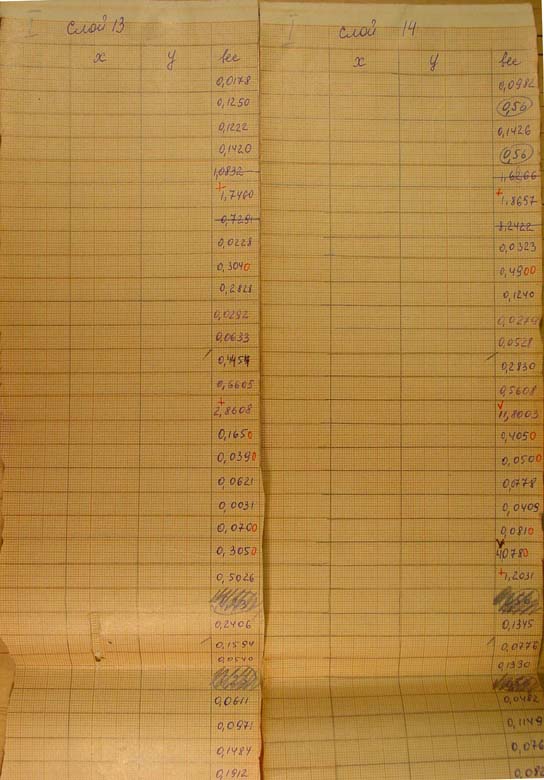 I слой 13
x y вес
0,0178
0,1250
0,1222
0,1420
1,0832
+
1,7460
0,7291
0,0228
0,3040
0,2828
0,0292
0,0633
0,4454
0,6605
+
2,8608
0,1650
0,0390
0,0621
0,0031
0,0700
0,3050
0,5026
0,2406
0,1594
0,0540
0,0611
0,0971
0,1484
0,1912
I слой 14
x y вес
0,0982
0,56
0,1426
0,56
1,6266
+
1,8657
8,2422
0,0323
0,4900
0,1240
0,0279
0,0528
0,2830
0,5608
v
11,8003
0,4050
0,0500
0,0778
0,0409
0,0810
v
4,0780
+
1,2031
0,1345
0,0776
0,1330
0,0482
0,1149
0,076
0,082